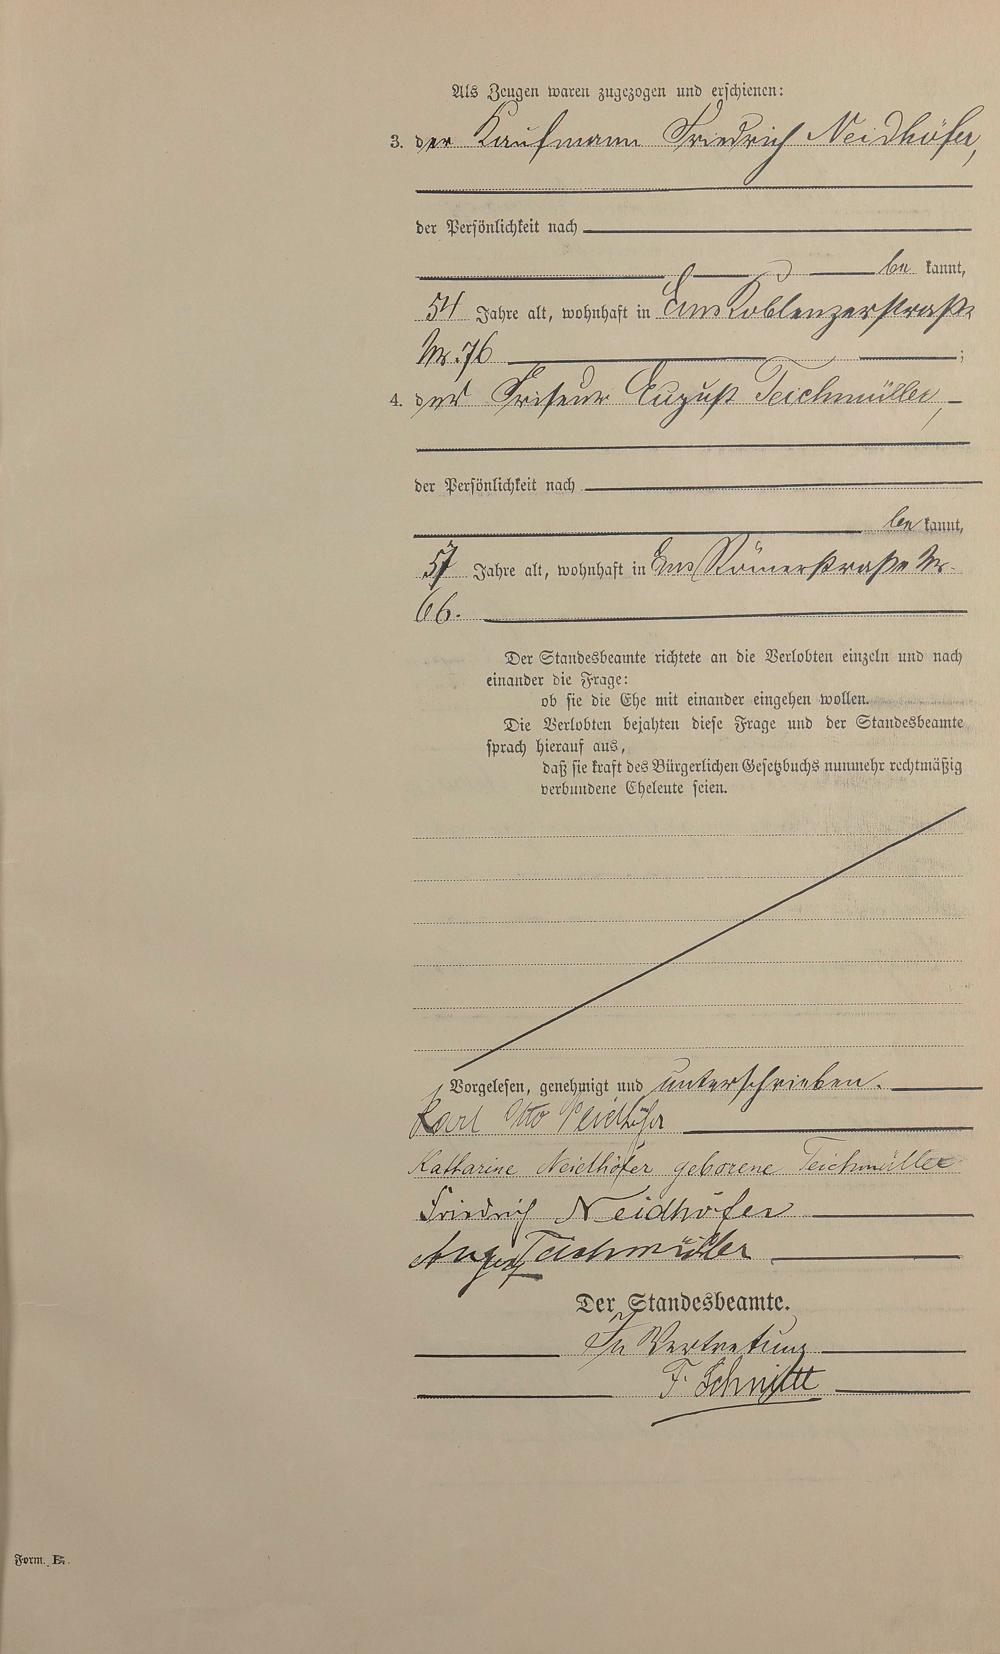 Als Zeugen waren zugezogen und erschienen:
3. der Kaufmann Friedrich Neidhöfer,
der Persönlichkeit nach
be kannt,
54 Jahre alt, wohnhaft in Ems Koblenzerstraße
Nr. 76 ;
4. der Friseur August Teichmüller,
der Persönlichkeit nach
be kannt,
57 Jahre alt, wohnhaft in Ems Römerstraße Nr.
66.
Der Standesbeamte richtete an die Verlobten einzeln und nach
einander die Frage:
ob sie die Ehe mit einander eingehen wollen.
Die Verlobten bejahten diese Frage und der Standesbeamte
sprach hierauf aus,
daß sie kraft des Bürgerlichen Gesetzbuchs nunmehr rechtmäßig
verbundene Eheleute seien.
Vorgelesen, genehmigt und unterschrieben.
Karl Otto Neidhöfer
Katharine Neidhöfer geborene Teichmüller
Friedrich Neidhöfer
August Teichmüller
Der Standesbeamte.
In Vertretung
F. Schmitt
Form. B.